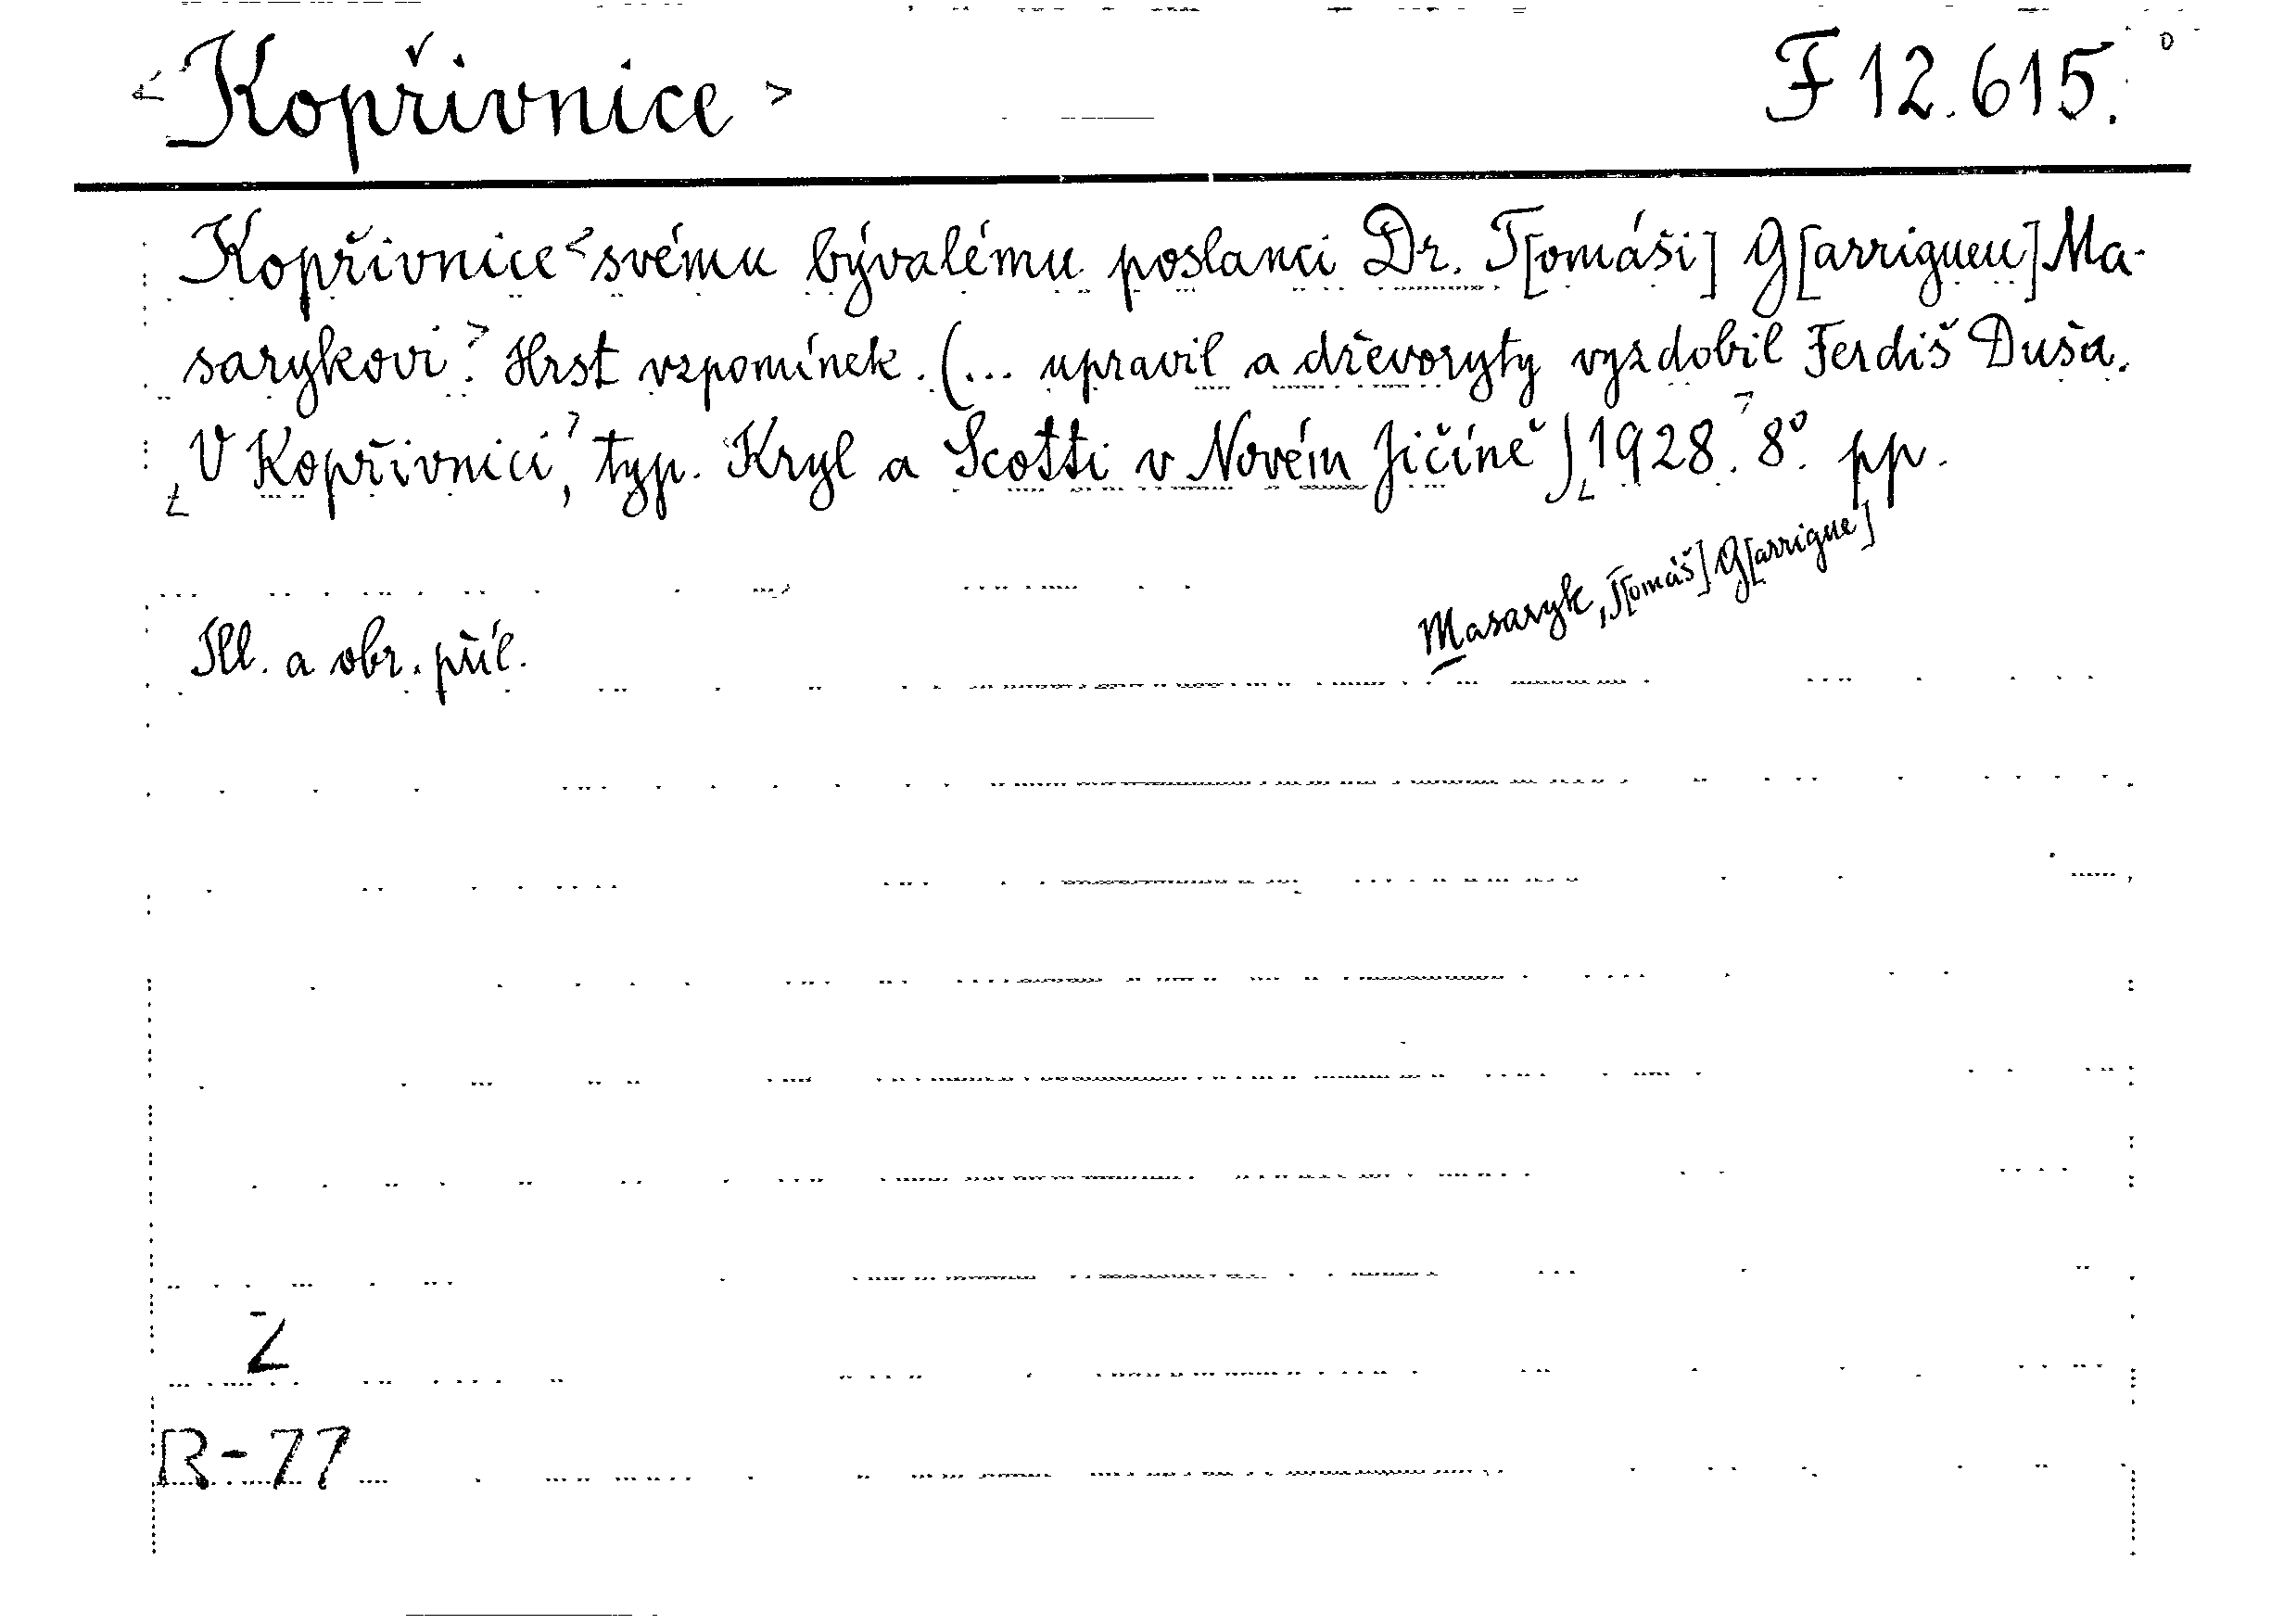 <Kopřivnice> F 12.615.
Kopřivnice <svému bývalému poslanci Dr. T[omáši] G[arrigueu] Ma-
sarykovi.> Hrst vzpomínek. (... upravil a dřevoryty vyzdobil Ferdiš Duša.
V Kopřivnici, typ. Kryl a Scotti v Novém Jičíně) 1928. 8°. pp.
Masaryk, T[omáš] G[arrigue]
Ill. a obr. příl.
Z
R-77